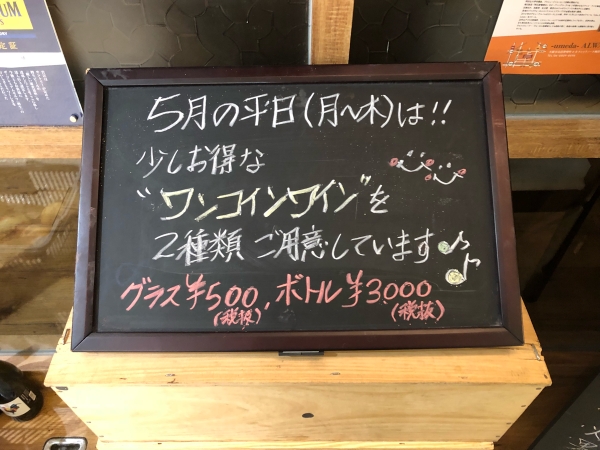 5月の平日(月〜木)は!!
少しお得な
"ワンコインワイン"を
2種類 ご用意しています♪
グラス¥500, ボトル¥3000
(税抜) (税抜)